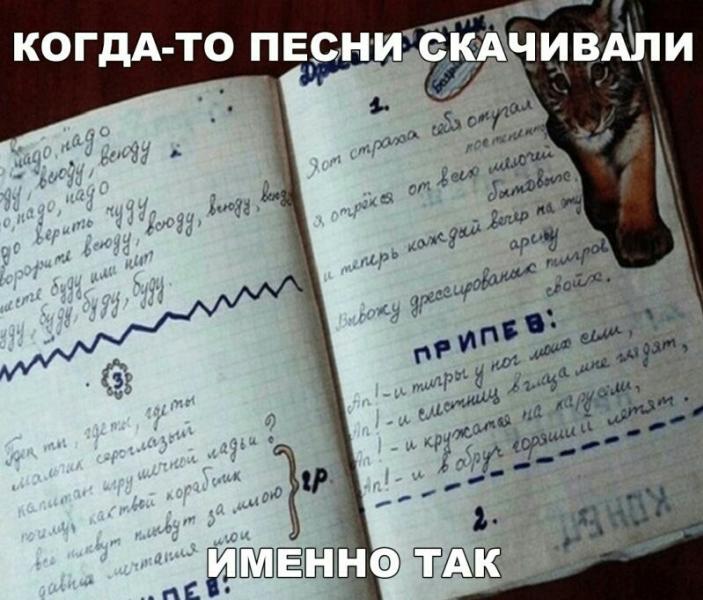 КОГДА-ТО ПЕСНИ СКАЧИВАЛИ
надо, надо
всюду, всюду
надо, надо
верить чуду
всюду, всюду, всюду
буду или нет
буду, буду, буду.
3
где ты, где ты
мальчик сероглазый
капитан игрушечной ладьи?
почему как твой кораблик
всё плывут плывут за мною
давние мечтания мои
2р.
ПРИПЕВ:
1.
Я от страха себя отучал
постепенно
я отрёкся от всех мелочей
бытовых.
и теперь каждый вечер на эту
арену
Вывожу дрессированных тигров
своих.
ПРИПЕВ:
Ап!-и тигры у ног моих сели,
Ап!-и с лестниц в глаза мне глядят,
Ап!-и кружатся на карусели,
Ап!-и в обруч горящий летят.
2.
КОНЕЦ
ИМЕННО ТАК